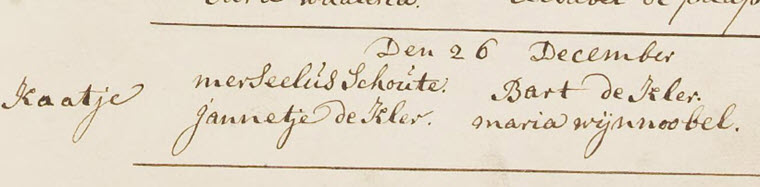 Den 26 December
Kaatje merseelus Schoute. Bart de Kler.
jannetje de Kler. maria wijnnoobel.